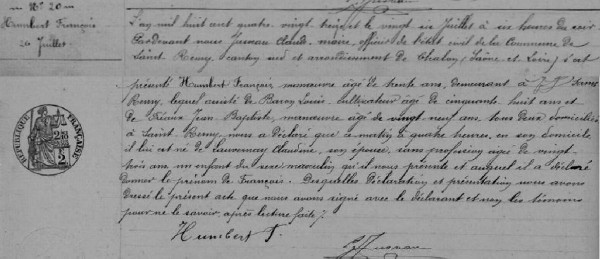 N° 20
Humbert François
26 Juillet
L'an mil huit cent quatre vingt et le vingt six Juillet à six heures du soir
Pardevant nous Jusnau Claude, maire, officier de l'état civil de la Commune de
Saint Remy, canton sud et arrondissement de Chalon (Saône et Loire) s'est
présenté Humbert François manœuvre âgé de trente ans, demeurant à Saint
Remy, lequel assisté de Louis, cultivateur âgé de cinquante huit ans et
de Jean Baptiste, manœuvre âgé de vingt neuf ans tous deux domiciliés
à Saint Remy, nous a déclaré que ce matin à quatre heures, en son domicile
il lui est né de Claudine, son épouse, sans profession âgée de vingt-
trois ans un enfant du sexe masculin qu'il nous présente et auquel il a déclaré
donner le prénom de François. Desquelles déclaration et présentation nous avons
dressé le présent acte que nous avons signé avec le déclarant et non les témoins
pour ne le savoir, après lecture faite.
Humbert F.
RÉPUBLIQUE FRANÇAISE